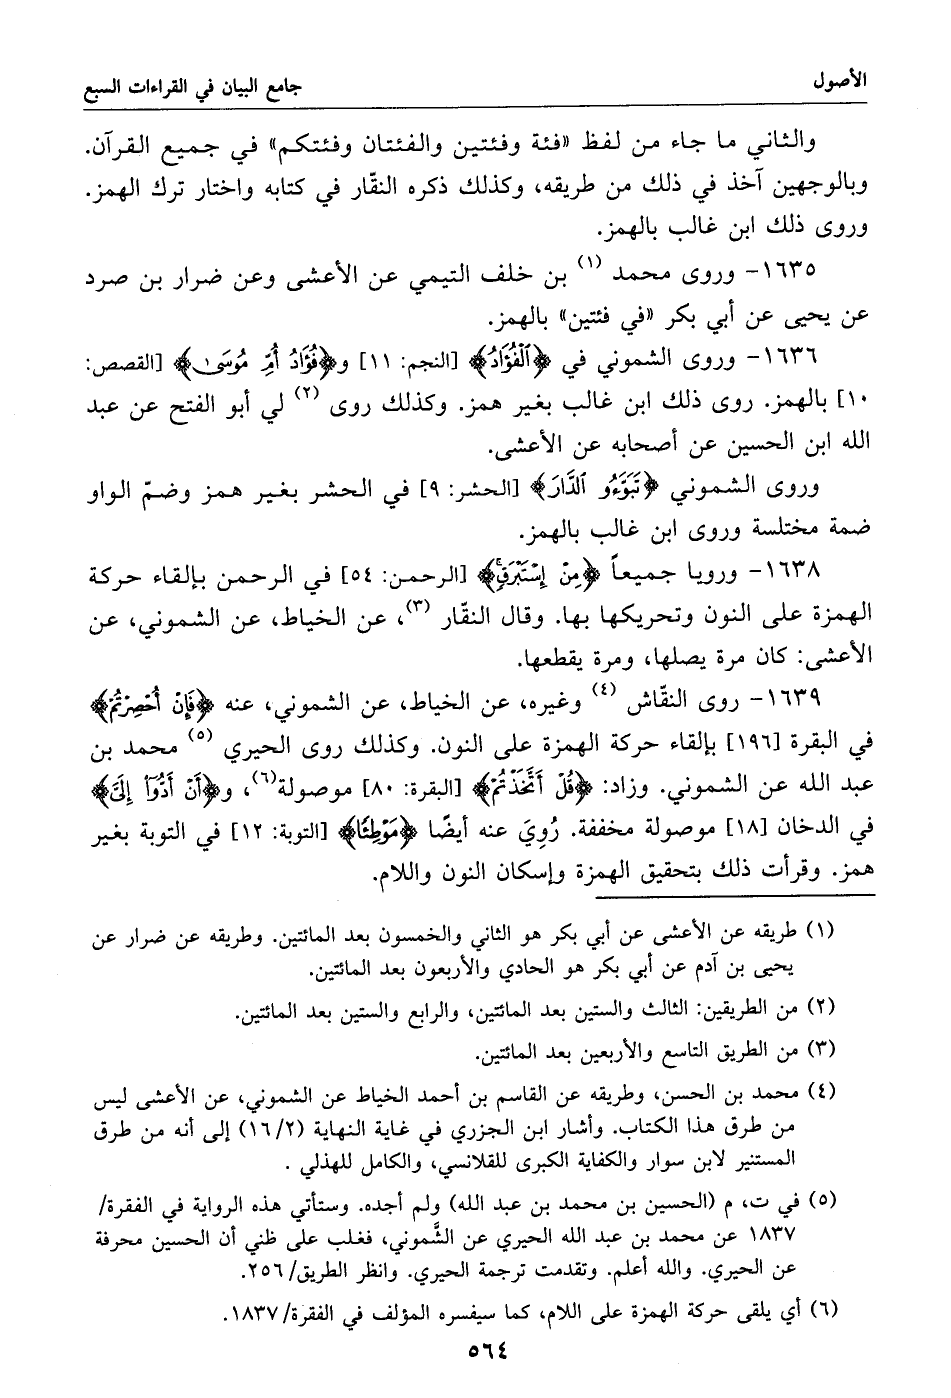 الأصول
جامع البيان في القراءات السبع
والثاني ما جاء من لفظ «فئة وفئتين والفئتان وفئتكم» في جميع القرآن.
وبالوجهين آخذ في ذلك من طريقه، وكذلك ذكره النقّار في كتابه واختار ترك الهمز.
وروى ذلك ابن غالب بالهمز.
١٦٣٥- وروى محمد (١) بن خلف التيمي عن الأعشى وعن ضرار بن صرد
عن يحيى عن أبي بكر «في فئتين» بالهمز.
١٦٣٦- وروى الشموني في ﴿ٱلْفُؤَادُ﴾ [النجم: ١١] و﴿فُؤَادُ أُمِّ مُوسَىٰ﴾ [القصص:
١٠] بالهمز. روى ذلك ابن غالب بغير همز. وكذلك روى (٢) لي أبو الفتح عن عبد
الله ابن الحسين عن أصحابه عن الأعشى.
وروى الشموني ﴿تَبَوَّءُو ٱلدَّارَ﴾ [الحشر: ٩] في الحشر بغير همز وضمّ الواو
ضمة مختلسة وروى ابن غالب بالهمز.
١٦٣٨- ورويا جميعاً ﴿مِنْ إِسْتَبْرَقٍ﴾ [الرحمن: ٥٤] في الرحمن بإلقاء حركة
الهمزة على النون وتحريكها بها. وقال النقّار (٣)، عن الخياط، عن الشموني، عن
الأعشى: كان مرة يصلها، ومرة يقطعها.
١٦٣٩- روى النقّاش (٤) وغيره، عن الخياط، عن الشموني، عنه ﴿فَإِنْ أُحْصِرْتُمْ﴾
في البقرة [١٩٦] بإلقاء حركة الهمزة على النون. وكذلك روى الحيري (٥) محمد بن
عبد الله عن الشموني. وزاد: ﴿قُلْ أَتَّخَذْتُمْ﴾ [البقرة: ٨٠] موصولة(٦)، و﴿أَنْ أَدُّوٓا۟ إِلَىَّ﴾
في الدخان [١٨] موصولة مخففة. رُوِيَ عنه أيضًا ﴿مَوْطِئًا﴾ [التوبة: ١٢] في التوبة بغير
همز. وقرأت ذلك بتحقيق الهمزة وإسكان النون واللام.
(١) طريقه عن الأعشى عن أبي بكر هو الثاني والخمسون بعد المائتين. وطريقه عن ضرار عن
يحيى بن آدم عن أبي بكر هو الحادي والأربعون بعد المائتين.
(٢) من الطريقين: الثالث والستين بعد المائتين، والرابع والستين بعد المائتين.
(٣) من الطريق التاسع والأربعين بعد المائتين.
(٤) محمد بن الحسن، وطريقه عن القاسم بن أحمد الخياط عن الشموني، عن الأعشى ليس
من طرق هذا الكتاب. وأشار ابن الجزري في غاية النهاية (١٦/٢) إلى أنه من طرق
المستنير لابن سوار والكفاية الكبرى للقلانسي، والكامل للهذلي .
(٥) في ت، م (الحسين بن محمد بن عبد الله) ولم أجده. وستأتي هذه الرواية في الفقرة/
١٨٣٧ عن محمد بن عبد الله الحيري عن الشَّموني، فغلب على ظني أن الحسين محرفة
عن الحيري. والله أعلم. وتقدمت ترجمة الحيري. وانظر الطريق/٢٥٦.
(٦) أي يلقى حركة الهمزة على اللام، كما سيفسره المؤلف في الفقرة/١٨٣٧.
٥٦٤